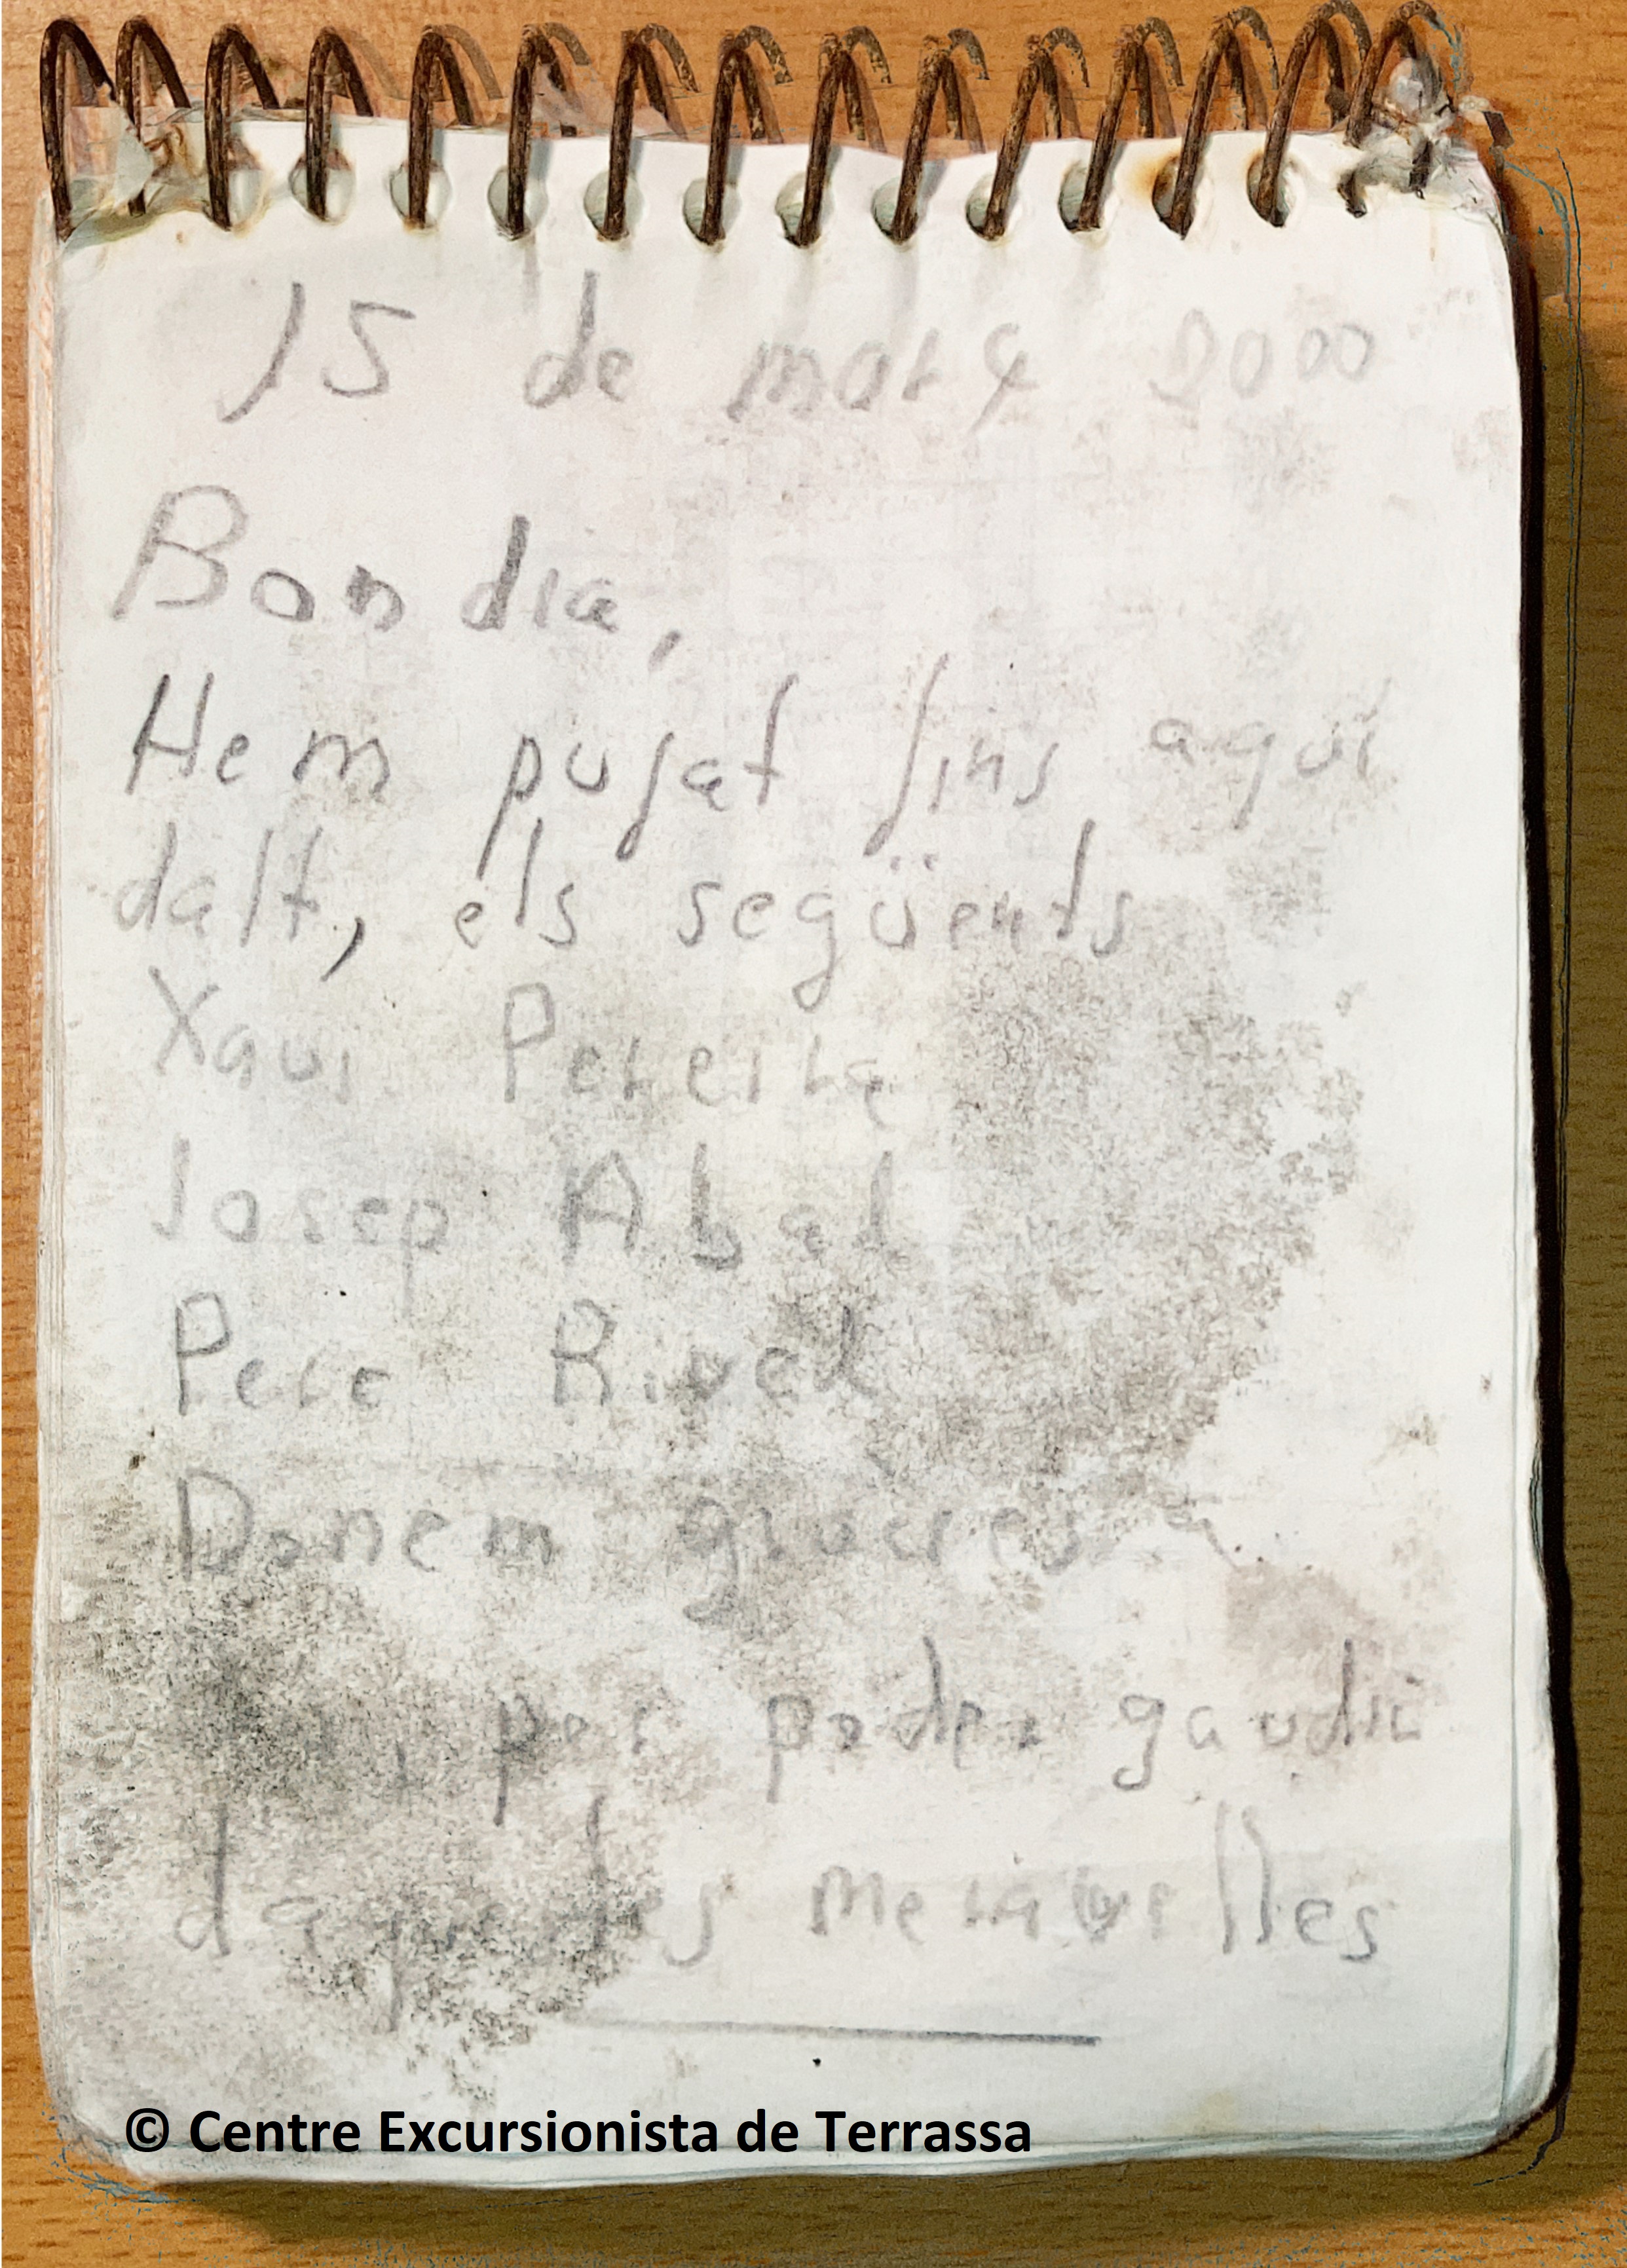 15 de març 2000
Bon dia,
Hem pujat fins aquí
dalt, els següents
Xavi Pereira
Josep Abat
Pere Rivel
Donem gràcies a
, per poder gaudir
daquestes meravelles
© Centre Excursionista de Terrassa